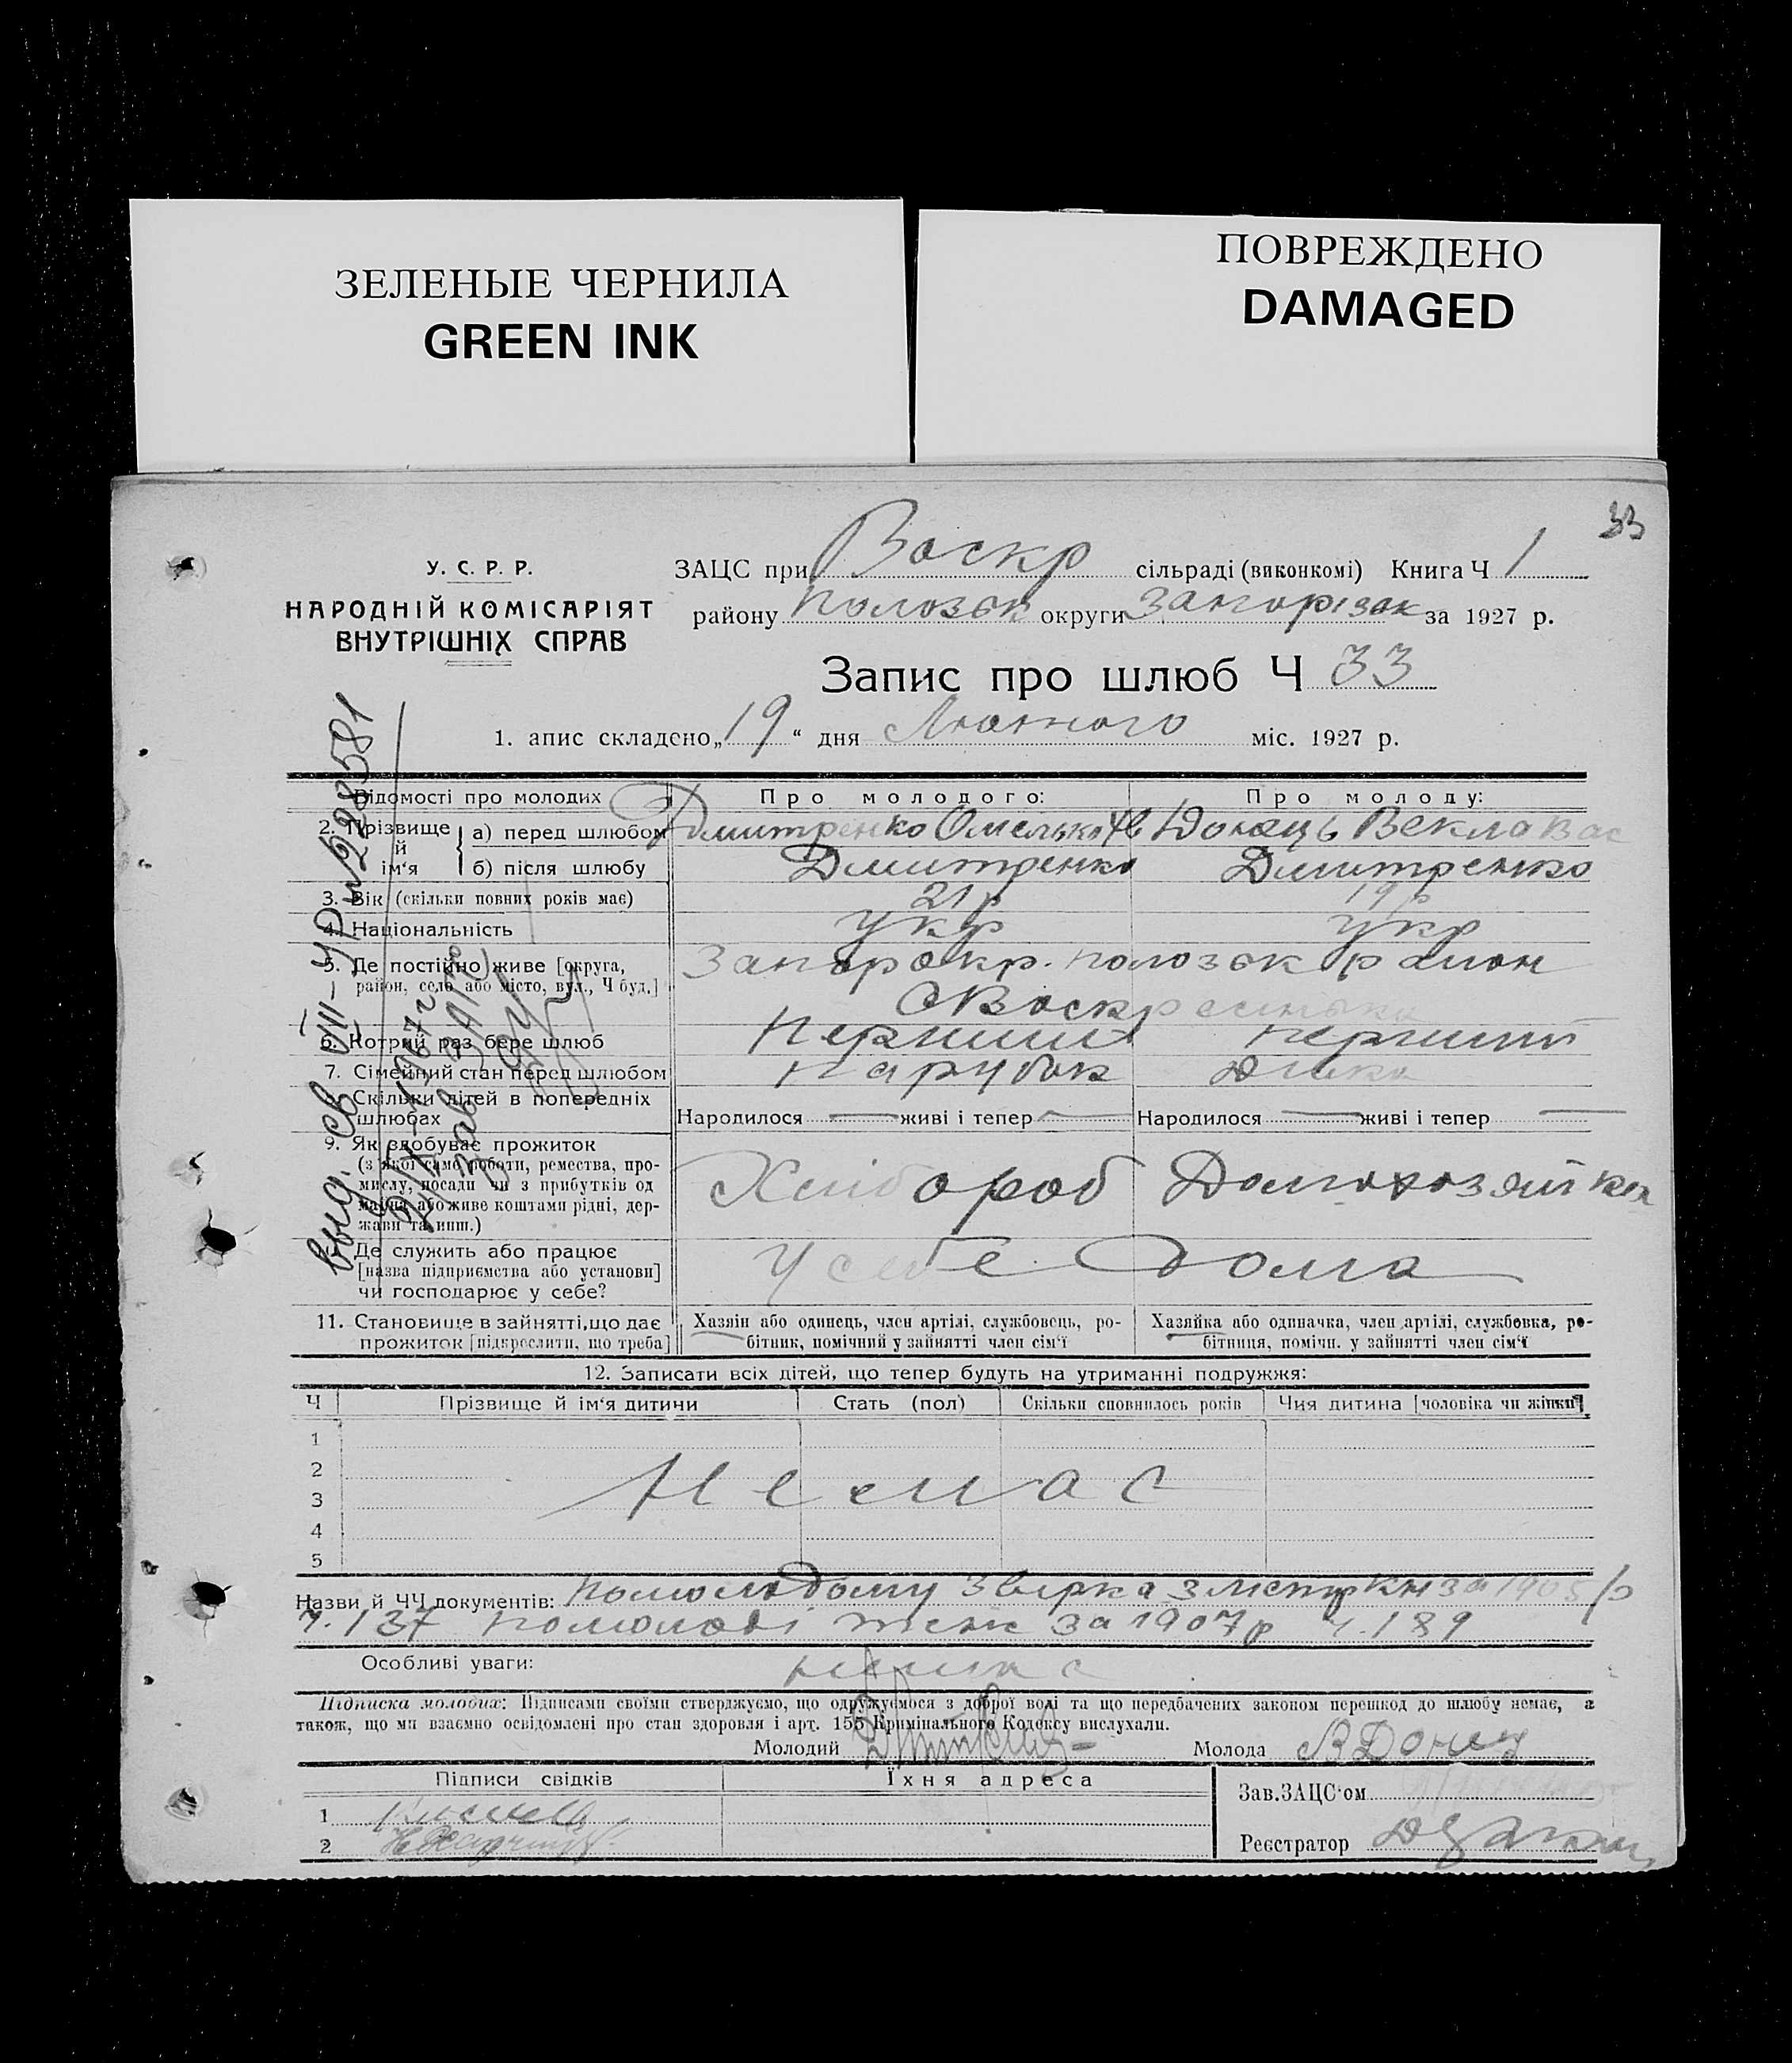 ЗЕЛЕНЫЕ ЧЕРНИЛА
GREEN INK
ПОВРЕЖДЕНО
DAMAGED
33
У. С. Р. Р.
НАРОДНІЙ КОМІСАРІЯТ
ВНУТРІШНІХ СПРАВ
ЗАЦС при Воскр сільраді (виконкомі) Книга Ч 1
району Полозєк округи Запорізак за 1927 р.
Запис про шлюб Ч 33
1. апис складено „19“ дня Лютого міс. 1927 р.
Відомості про молодих Про молодого: Про молоду:
2. Прізвище й ім‘я а) перед шлюбом Дмитренко Омелько Донець Векла Вас
б) після шлюбу Дмитренко Дмитренко
3. Вік (скільки повних років має) 21 р 19 р
4. Національність укр укр
5. Де постійно живе [округа, Запор окр. Полозєк район
район, село або місто, вул., Ч буд.] С Воскр
6. Котрий раз бере шлюб Перший перший
7. Сімейний стан перед шлюбом Парубок Дівка
Скільки дітей в попередніх
шлюбах Народилося — живі і тепер — Народилося — живі і тепер —
9. Як здобуває прожиток
(з якої саме роботи, ремества, про-
мислу, посади чи з прибутків од
майна, або живе коштами рідні, дер-
жави та инш.) Хлібороб Домохозяйка
Де служить або працює
[назва підприємства або установи] У себе дома
чи господарює у себе?
11. Становище в зайнятті, що дає Хазяін або одинець, член артілі, службовець, ро- Хазяйка або одиначка, член артілі, службовка, ро-
прожиток [підкреслити, що треба] бітник, помічний у зайнятті член сім‘ї бітниця, помічн. у зайнятті член сім‘ї
12. Записати всіх дітей, що тепер будуть на утриманні подружжя:
Ч Прізвище й ім‘я дитини Стать (пол) Скільки сповнилось років Чия дитина [чоловіка чи жінки]
1
2
3 Немає
4
5
Назви й ЧЧ документів: по молодому звірка з метрики за 1905 р
ч. 137 по молоді теж за 1907 р ч. 189
Особливі уваги: немає
Підписка молодих: Підписами своїми стверджуємо, що одружуємося з доброї волі та що передбачених законом перешкод до шлюбу немає, а
також, що ми взаємно освідомлені про стан здоровля і арт. 155 Кримінального Кодексу вислухали.
Молодий Молода В Донец
Підписи свідків Їхня адреса
Зав. ЗАЦС‘ом
1
2
Реєстратор
выд. св VIII-УР № 528581
2/IX-1967 г
Зав ЗАГС